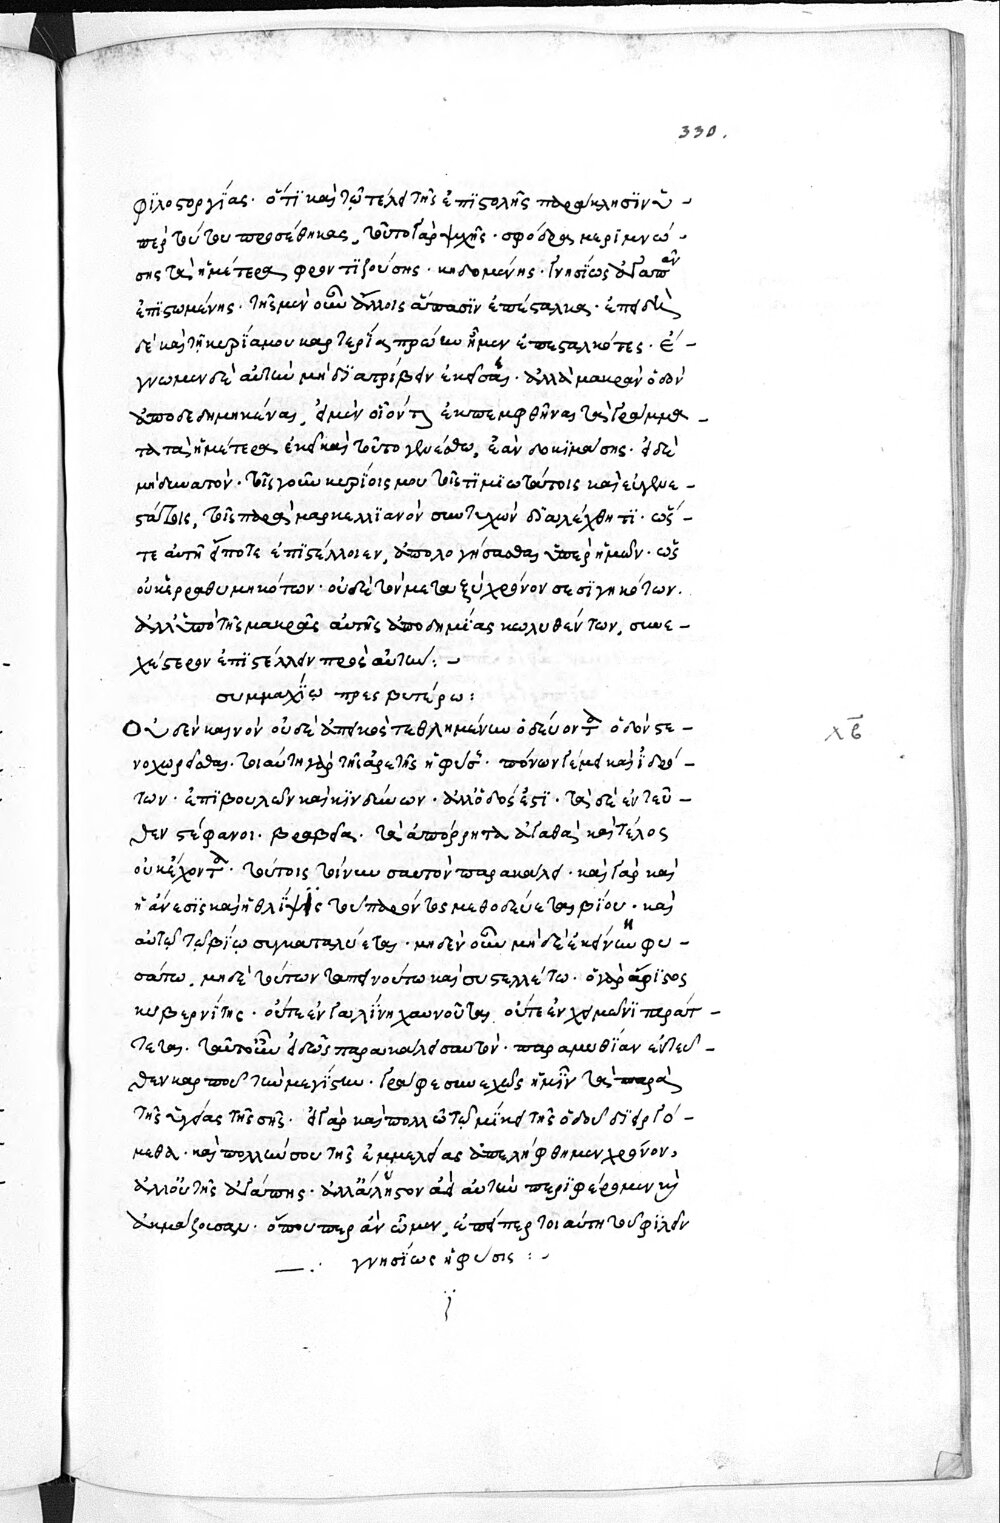 330.
φιλοστοργίας· ὅτι καὶ τῷ τέλει τῆς ἐπιστολῆς παράκλησιν ὑ-
πὲρ τούτου προσέθηκας, τοῦτο γὰρ ψυχῆς· σφόδρα μεριμνώ-
σης τὰ ἡμέτερα, φροντιζούσης· κηδομένης· γνησίως ἀγαπᾶν
ἐπισταμένης· τῆς μὲν οὖν ἄλλοις ἅπασιν ἐπέσταλκα· ἐπειδὴ
δὲ καὶ τῇ κυρίᾳ μου καρτερίᾳ πρώτῳ ἦμεν ἐπεσταλκότες· ἔ-
γνωμεν δὲ αὐτὴν μὴ διατρίβειν ἐκεῖσε· ἀλλὰ μακρὰν ὁδὸν
ἀποδεδημηκέναι, εἰ μὲν οἷόν τε ἐκπεμφθῆναι τὰ γράμμα-
τα τὰ ἡμέτερα ἐκεῖ καὶ τοῦτο γενέσθω, ἐὰν δοκιμάσῃς· εἰ δὲ
μὴ δυνατόν· τοῖς γοῦν κυρίοις μου τοῖς τιμιωτάτοις καὶ εὐγενε-
στάτοις, τοῖς παρὰ μαρκελλιανὸν συντελῶν διαλέχθητι· ὥσ-
τε αὐτῇ εἴποτε ἐπιστέλλοιεν, ἀπολογήσασθαι ὑπὲρ ἡμῶν· ὡς
οὐκ ἐρραθυμηκότων· οὐδὲ τὸν μεταξὺ χρόνον σεσιγηκότων.
ἀλλ' ὑπὸ τῆς μακρᾶς αὐτῆς ἀποδημίας κωλυθέντων, συνε-
χέστερον ἐπιστέλλειν πρὸς αὐτήν:-
συμμαχίῳ πρεσβυτέρῳ:
Οὐδὲν καινὸν οὐδὲ ἀπεικὸς τεθλημένην ὁδεύοντα ὁδὸν στε-
νοχωρεῖσθαι· τοιαύτη γὰρ τῆς ἀρετῆς ἡ φύσις· πόνων γέμει καὶ ἱδρώ-
των· ἐπιβουλῶν καὶ κινδύνων· ἀλλ' ὁδός ἐστι· τὰ δὲ ἐντεῦ-
θεν στέφανοι· βραβεῖα· τὰ ἀπόρρητα ἀγαθὰ καὶ τέλος
οὐκ ἔχοντα· τούτοις τοίνυν σαυτὸν παρακάλει· καὶ γὰρ καὶ
ἡ ἄνεσις καὶ ἡ θλίψις τοῦ παρόντος μεθοδεύεται βίου· καὶ
αὐτῷ τῷ βίῳ συγκαταλύεται· μηδὲν οὖν μὴ δὲ ἐκείνων φυ-
σάτω, μηδὲ τούτων ταπεινούτω καὶ συστελλέτω· ὁ γὰρ ἄριστος
κυβερνίτης· οὔτε ἐν γαλήνῃ χαυνοῦται, οὔτε ἐν χειμῶνι ταράτ-
τεται. ταῦτ' οὖν εἰδὼς παρακάλει σαυτὸν· παραμυθίαν ἐντεῦ-
θεν καρποῦ τὴν μεγίστην· γράφε συνεχῶς ἡμῖν τὰ παρὰ
τῆς ὑγείας τῆς σῆς· εἰ γὰρ καὶ πολλῷ τῷ μήκει τῆς ὁδοῦ διειργό-
μεθα· καὶ πολλὴν σου τῆς ἐμμελείας ἀπελήφθημεν χρόνον,
ἀλλ' οὔ τῆς ἀγάπης· ἀλλ' ἄληστον ἀεὶ αὐτὴν περιφέρομεν καὶ
ἀκμάζουσαν· ὅπου περ ἂν ὦμεν, ἐπείπερ τοιαύτη τοῦ φιλεῖν
γνησίως ἡ φύσις:-